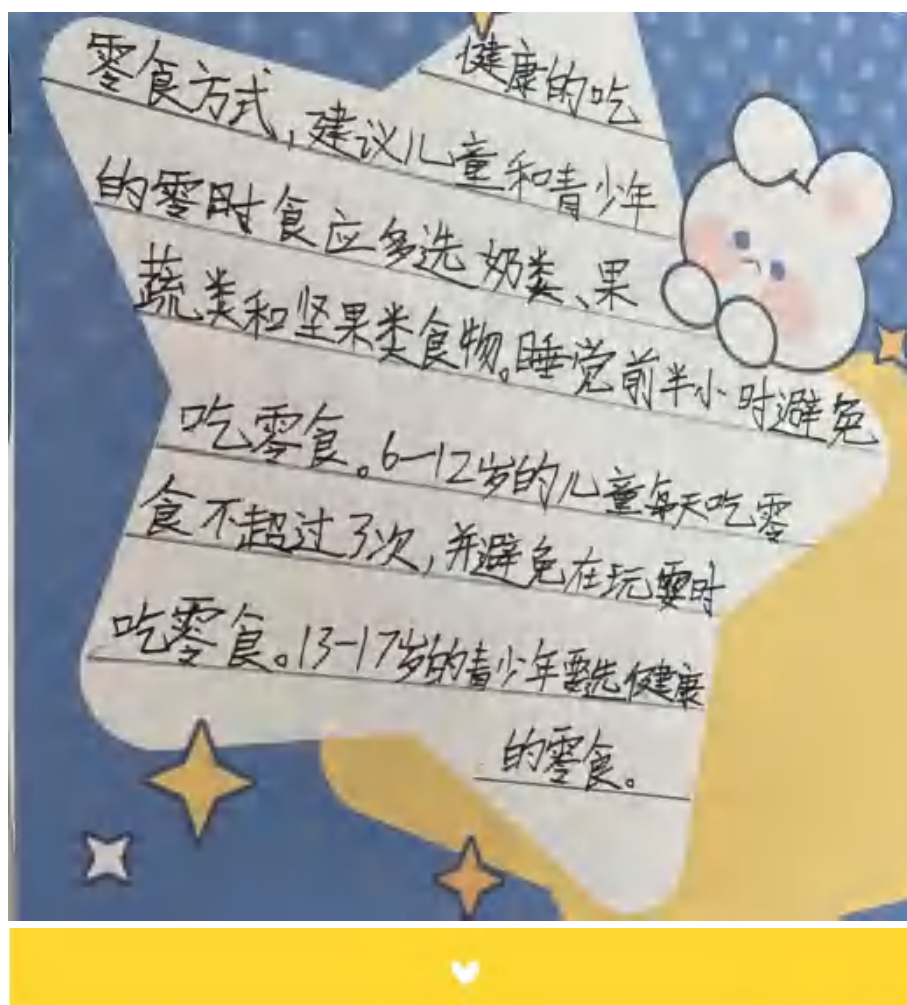 健康的吃
零食方式,建议儿童和青少年
的零时食应多选奶类、果
蔬类和坚果类食物。睡觉前半小时避免
吃零食。6-12岁的儿童每天吃零
食不超过3次,并避免在玩耍时
吃零食。13-17岁的青少年要选健康
的零食。